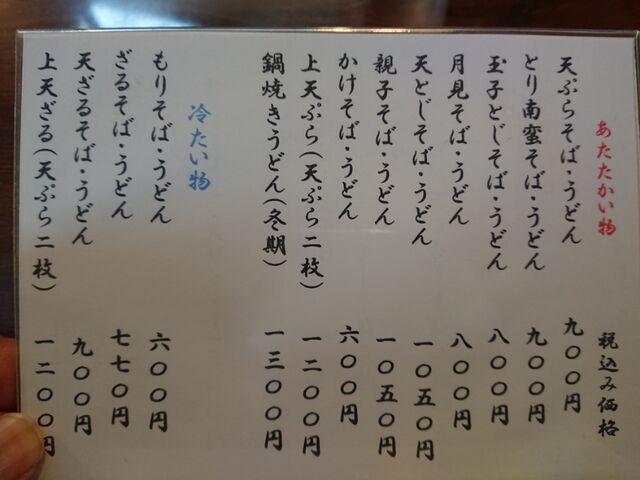 あたたかい物　税込み価格
天ぷらそば・うどん　九〇〇円
とり南蛮そば・うどん　九〇〇円
玉子とじそば・うどん　八〇〇円
月見そば・うどん　八〇〇円
天とじそば・うどん　一〇五〇円
親子そば・うどん　一〇五〇円
かけそば・うどん　六〇〇円
上天ぷら(天ぷら二枚)　一二〇〇円
鍋焼きうどん(冬期)　一三〇〇円
冷たい物
もりそば・うどん　六〇〇円
ざるそば・うどん　七七〇円
天ざるそば・うどん　九〇〇円
上天ざる(天ぷら二枚)　一二〇〇円